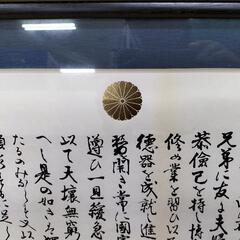 兄弟に友に夫
恭儉己を持し博
修め業を習ひ以
徳器を成就し進
務開き常に國
遵ひ一旦緩急
以て天壤無窮
へし是の如き
たるのみならす又以